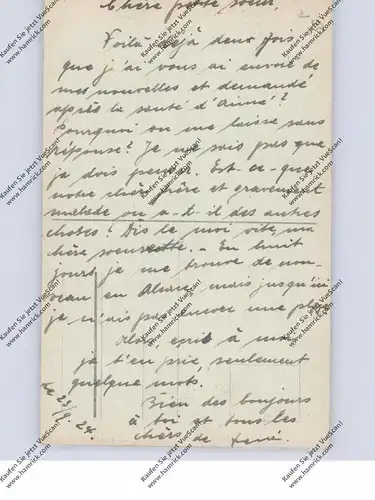 Chère petite soeur,
Voilà déjà deux fois
que j'ai vous ai envoié de
mes nouvelles et demandé
après la santé d'Aimé?
Pourquoi on me laisse sans
réponse? Je ne sais pas que
je dois penser. Est-ce-que
notre cher frère et gravement
malade ou a-t-il des autres
choses? Dis le moi vite, ma
chère soeurette. - En huit
jours je me trouve de nou-
veau en Alsace, mais jusqu'ici
je n'ais pas encore une
Alors ecrit à moi
je t'en prie, seulement
quelque mots.
Bien des bonjours
à toi et tous les
chers de René.
Le 23/9 24.